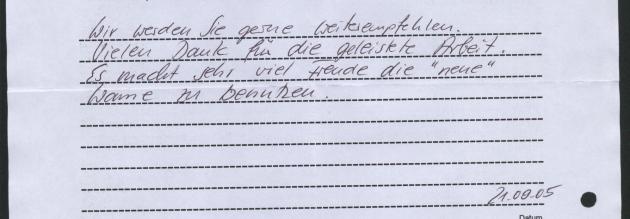 Wir werden Sie gerne weiterempfehlen.
Vielen Dank für die geleistete Arbeit.
Es macht sehr viel Freude die "neue"
Wanne zu benutzen.
21.09.05
Datum